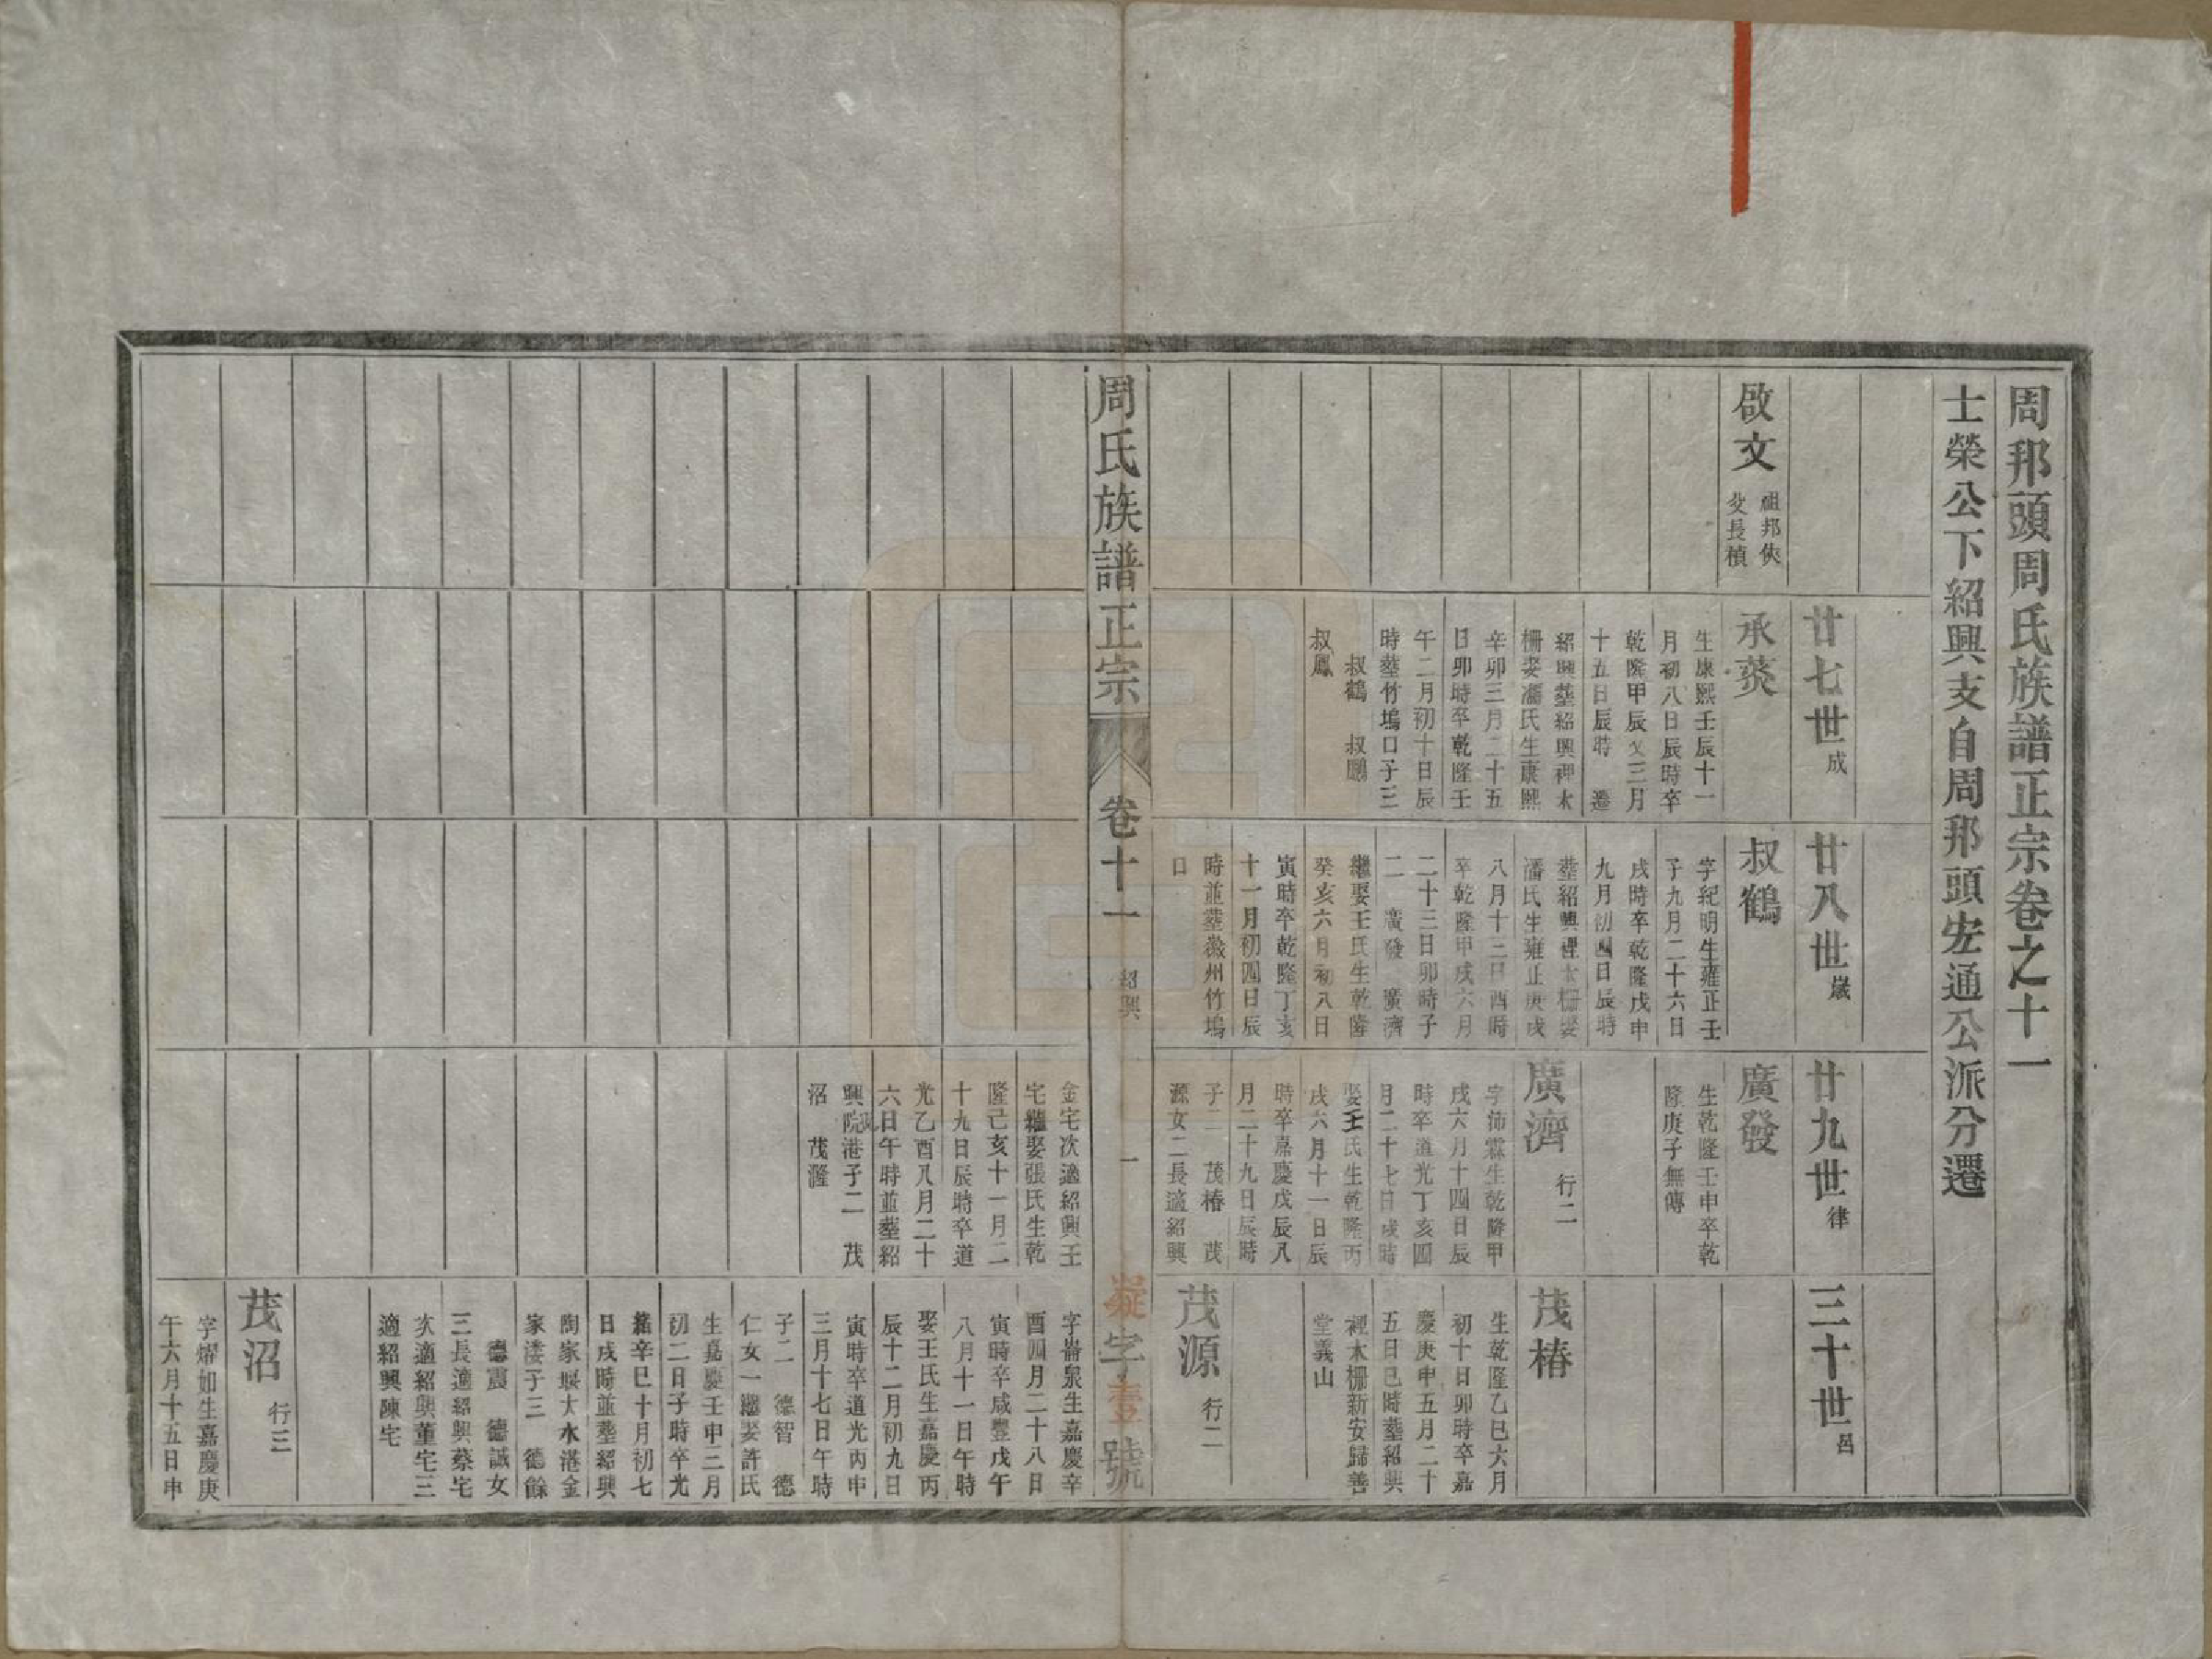 周邦頭周氏族譜正宗卷之十一
士榮公下紹興支自周邦頭宏通公派分遷
啟文
祖邦俠
父長楨
廿七世成
承葵
生康熙壬辰十一
月初八日辰時卒
乾隆甲辰又三月
十五日辰時 遷
紹興塟紹興裡木
柵娶馮氏生康熙
辛卯三月二十五
日卯時卒乾隆壬
午二月初十日辰
時塟竹塢口子三
叔鶴 叔鵬
叔鳳
廿八世歲
叔鶴
字紀明生雍正壬
子九月二十六日
戌時卒乾隆戊申
九月初四日辰時
塟紹興裡木柵娶
潘氏生雍正庚戌
八月十三日酉時
卒乾隆甲戌六月
二十三日卯時子
二 廣發 廣濟
繼娶王氏生乾隆
癸亥六月初八日
寅時卒乾隆丁亥
十一月初四日辰
時並塟徽州竹塢
口
廿九世律
廣發
生乾隆壬申卒乾
隆庚子無傳
廣濟
行二
字沛霖生乾隆甲
戌六月十四日辰
時卒道光丁亥四
月二十七日戌時
娶王氏生乾隆丙
戌六月十一日辰
時卒嘉慶戊辰八
月二十九日辰時
子二 茂椿 茂
源女二長適紹興
三十世呂
茂椿
生乾隆乙巳六月
初十日卯時卒嘉
慶庚申五月二十
五日巳時塟紹興
裡木柵新安歸善
堂義山
茂源
行二
周氏族譜正宗
卷十一
紹興
一
凝字壹號
金宅次適紹興王
宅繼娶張氏生乾
隆己亥十一月二
十九日辰時卒道
光乙酉八月二十
六日午時並塟紹
興院港子二 茂
沼 茂瀣
字崙泉生嘉慶辛
酉四月二十八日
寅時卒咸豐戊午
八月十一日午時
娶王氏生嘉慶丙
辰十二月初九日
寅時卒道光丙申
三月十七日午時
子二 德智 德
仁女一繼娶許氏
生嘉慶壬申三月
初二日子時卒光
緒辛巳十月初七
日戌時並塟紹興
陶家堰大水港金
家溇子三 德餘
德震 德誠女
三長適紹興蔡宅
次適紹興董宅三
適紹興陳宅
茂沼
行三
字燿如生嘉慶庚
午六月十五日申